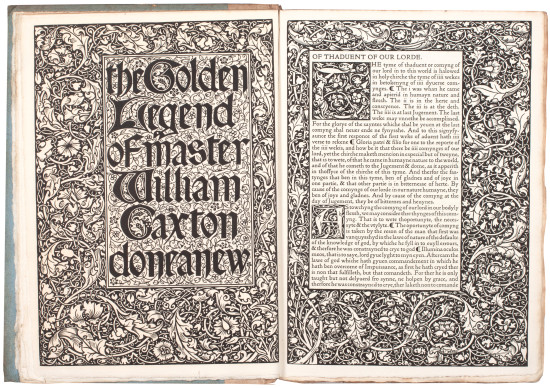 the Golden
Legend
of master
William
Caxton
done anew
OF THADUENT OF OUR LORDE.
THE tyme of thaduent or comyng of
our lord in to this world is halowed
in holy chirche the tyme of iiii wekes
in betokenyng of iiii dyuerse com-
ynges. ¶ The i was whan he came
and apierid in humayn nature and
flessh. The ii is in the herte and
conscience. The iii is at the deth.
The iiii is at last Jugement. The last
weke may vnnethe be accomplissed.
For the glorye of the sayntes whiche shal be yeuen at the last
comyng shal neuer ende ne fynysshe. And to this signyfy-
ance the first responce of the first weke of aduent hath iiii
verse to rekene ¶ Gloria patri & filio for one to the reporte of
the iiii wekes, and how be it that there be iiii comynges of our
lord, yet the chirche maketh mencion in especial but of tweyne,
that is to wete, of that he came in humayne nature to the world,
and of that he cometh to the Jugement & dome, as it apperith
in thoffyce of the chirche of this tyme. And therfor the fas-
tynges that ben in this tyme, ben of gladnes and of joye in
one partie, & that other partie is in bitternesse of herte. By
cause of the comyng of our lord in our nature humayne, they
ben of joye and gladnes. And by cause of the comyng at the
day of Jugement, they be of bitternes and heuynes.
As towchyng the comyng of our lord in our bodyly
flessh, we may considere thre thynges of this com-
yng. That is to wete thoportunyte, the neces-
syte & the vtylyte. ¶ The oportunyte of comyng
is taken by the reson of the man that first was
vanquysshyd in the lawe of nature of the defaulte
of the knowledge of god, by whiche he fyll in to euyll errours,
& therfore he was constrayned to crye to god ¶ Illumina oculos
meos, that is to saye, lord gyue lyght to myn eyen. After cam the
lawe of god whiche hath gyuen commandement in which he
hath ben ouercome of Impuissance, as first he hath cryed ther
is non that fulfilleth, but that comandeth. For ther he is only
taught but not delyuerd fro synne, ne holpen by grace, and
therfore he was constrayned to crye, ther lacketh non to comande